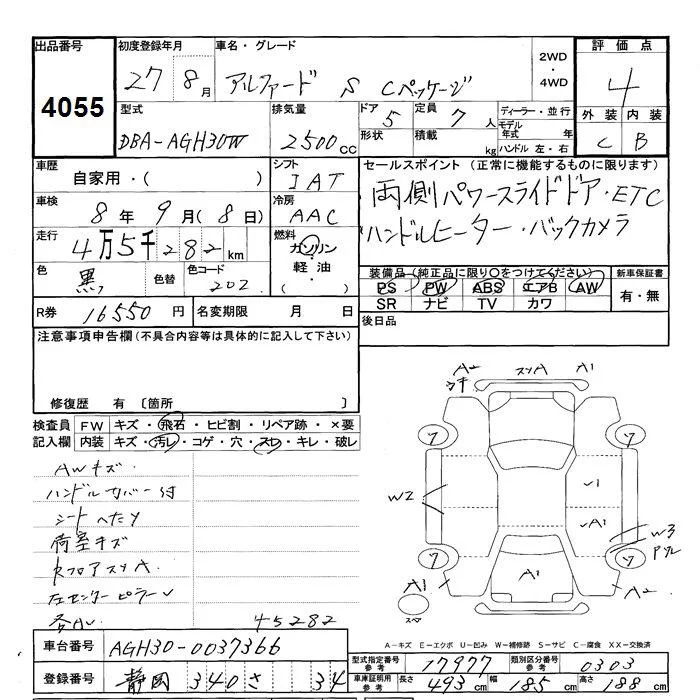 出品番号 初度登録年月 車名・グレード 評価点
4055 27 8月 アルファード S Cパッケージ 2WD・4WD 4
型式 排気量 ドア 定員 ディーラー・並行 外装 内装
DBA-AGH30W 2500cc 5 7人 モデル年式 年 C B
形状 積載 kg ハンドル 左・右
車歴 シフト セールスポイント (正常に機能するものに限ります)
自家用・( ) IAT 両側パワースライドドア・ETC
車検 冷房 ハンドルヒーター・バックカメラ
8年9月(8日) AAC
走行 燃料
4万5千282km ガソリン・軽油・( )
色 色替 色コード 装備品(純正品に限り○をつけてください) 新車保証書
黒 202 PS PW ABS エアB AW 有・無
SR ナビ TV カワ
R券 16550円 名変期限 月 日 後日品
注意事項申告欄(不具合内容等は具体的に記入して下さい)
修復歴 有 〔箇所
検査員記入欄 FW キズ・飛石・ヒビ割・リペア跡・×要
内装 キズ・汚レ・コゲ・穴・スレ・キレ・破レ
AWキズ
ハンドルカバー付
シートへたり
荷室キズ
RフロアスリA
左センターピラー
各AU
45282
A2
スリA
A1
ワ
ワ
W2
A1
W3
ワ
ワ
A1
スペア
A1
A2
A-キズ E-エクボ U-凹み W-補修跡 S-サビ C-腐食 XX-交換済
車台番号 AGH30-0037366
型式指定番号 参考 17977 類別区分番号 参考 0303
登録番号 静岡 340 さ 34
車庫証明用 参考 長さ 493cm 幅 185cm 高さ 188cm